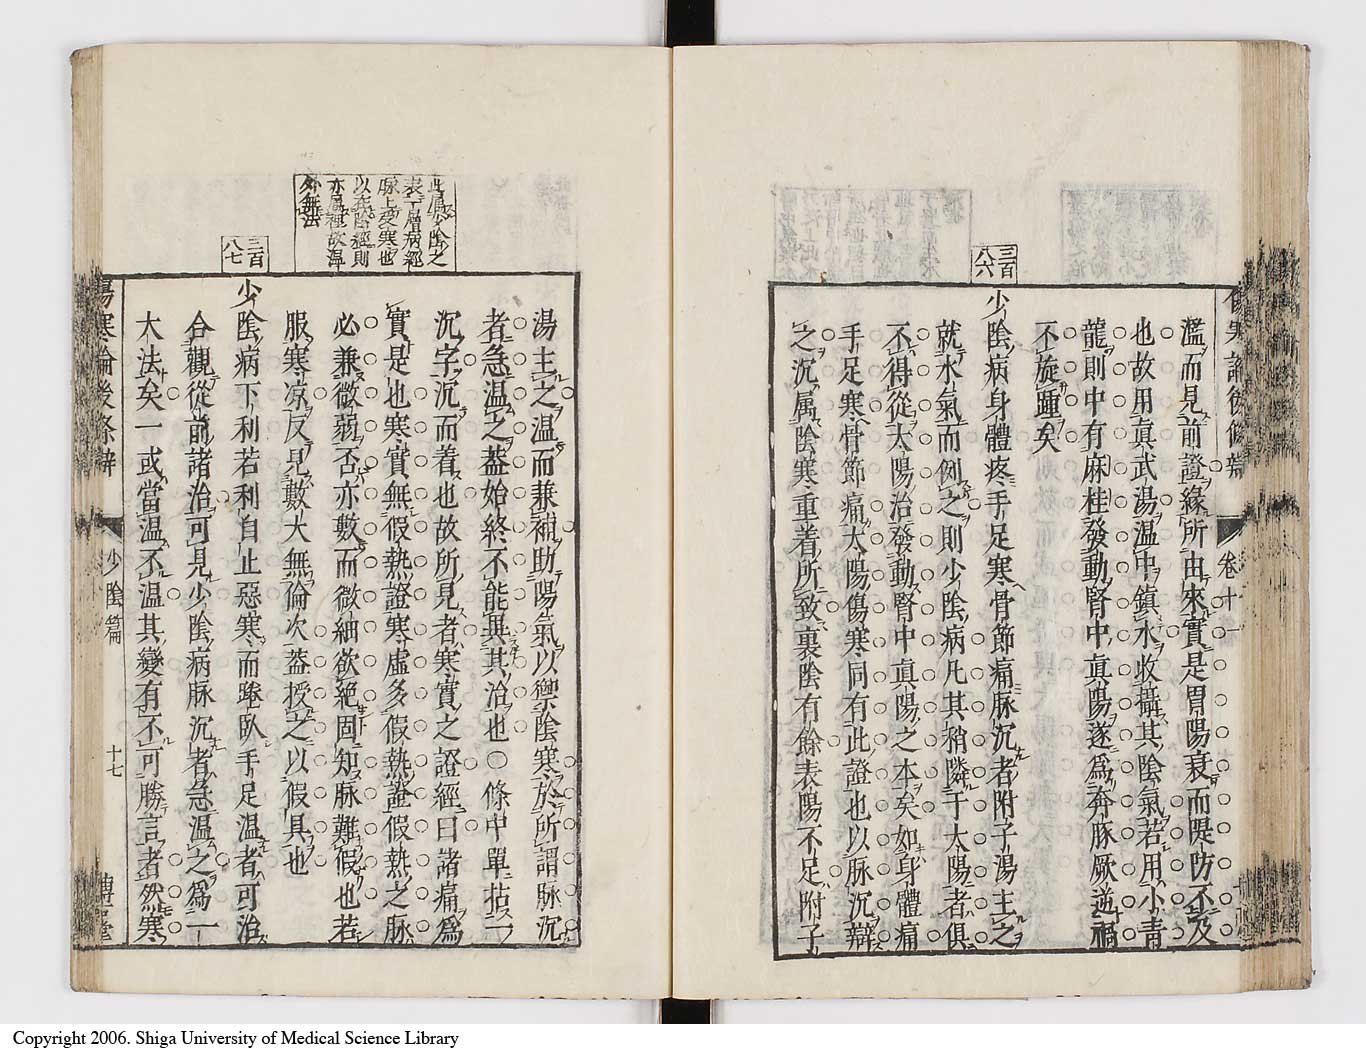 傷寒論後條辨 卷十一
濫而見前證緣所由來實是胃陽衰而隄防不及
也故用眞武湯溫中鎮水收攝其陰氣若用小青
龍則中有麻桂發動腎中眞陽遂爲奔豚厥逆禍
不旋踵矣
三百八六
少陰病身體疼手足寒骨節痛脉沉者附子湯主之
就水氣而例之則少陰病凡其稍隣于太陽者俱
不得從太陽治發動腎中眞陽之本矣如身體痛
手足寒骨節痛太陽傷寒同有此證也以脉沉辯
之沉属陰寒重着所致裏陰有餘表陽不足附子
湯主之溫而兼補助陽氣以禦陰寒於所謂脉沉
者急溫之葢始終不能異其治也○條中單拈一
沉字沉而着也故所見者寒實之證經曰諸痛爲
實是也寒實無假熱證寒虛多假熱證假熱之脉
必兼微弱否亦數而微細欲絕固知脉難假也若
服寒凉反見數大無倫次葢授之以假具也
此属少陰之
表一層病經
脉上受寒也
以在陰經則
亦属裡故溫
外無法
三百八七
少陰病下利若利自止惡寒而踡臥手足溫者可治
合觀從前諸治可見少陰病脉沉者急溫之爲一
大法矣一或當溫不溫其變有不可勝言者然寒
傷寒論後條辨 少陰篇 十七